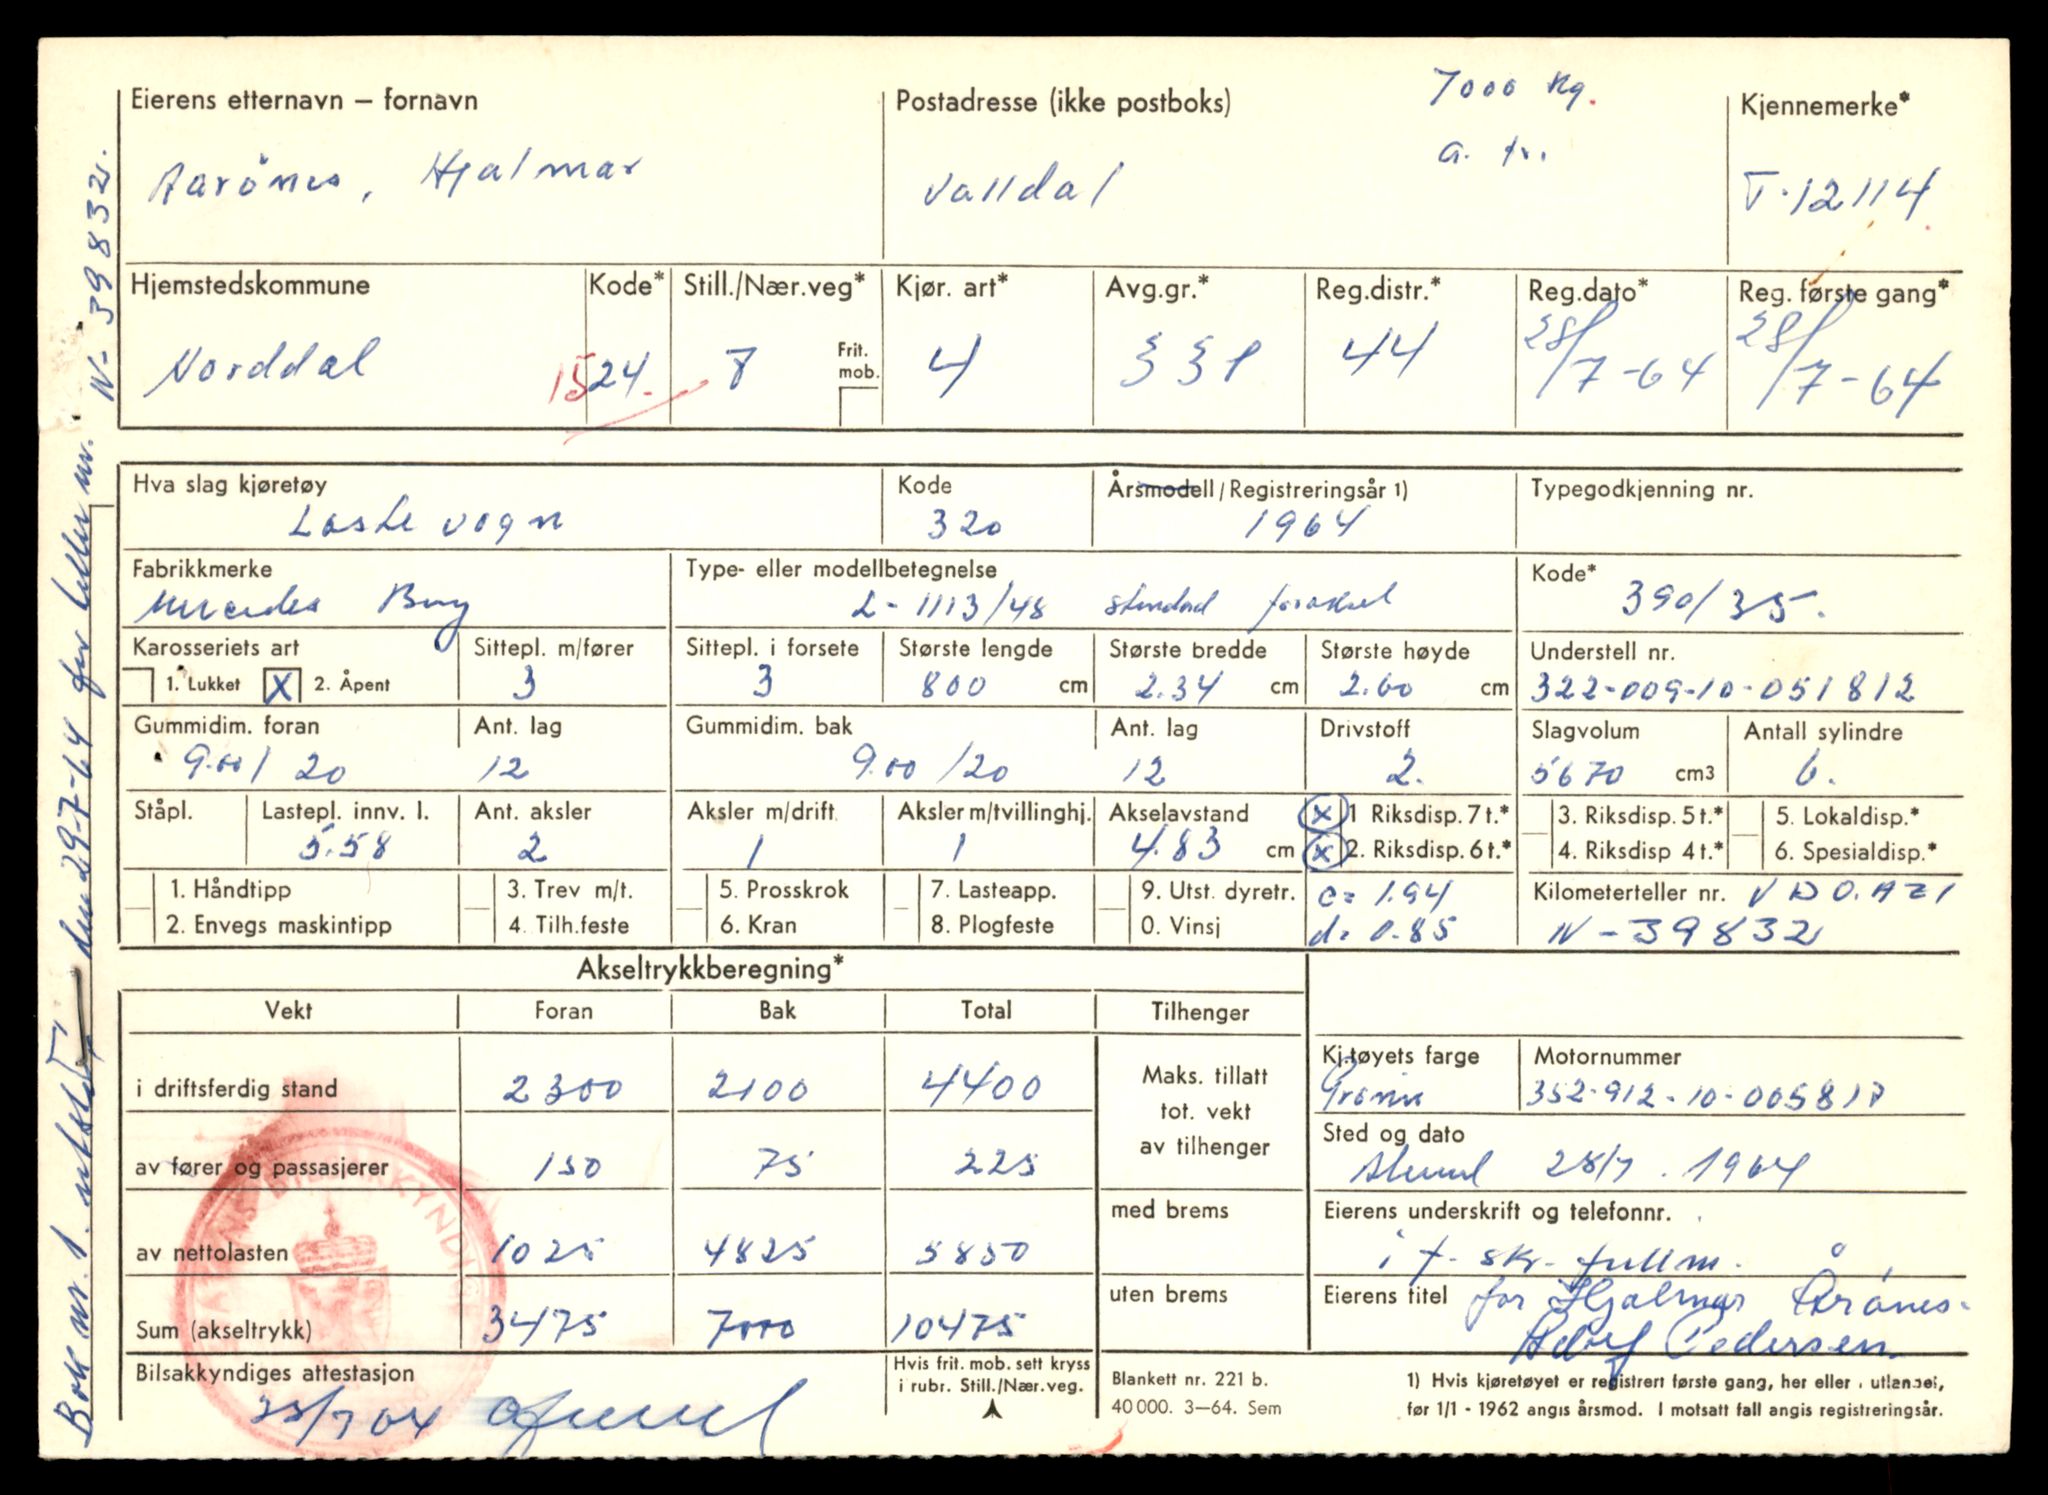 Eierens etternavn – fornavn
Aarönes, Hjalmar
Postadresse (ikke postboks)
Valldal
7000 kg.
a. tr.
Kjennemerke*
T-12114
Hjemstedskommune
Norddal
Kode*
1524.
Still./Nær.veg*
7
Frit. mob.
Kjør. art*
4
Avg.gr.*
Reg.distr.*
44
Reg.dato*
28/7-64
Reg. første gang*
28/7-64
Hva slag kjøretøy
Lastevogn
Kode
320
Årsmodell/Registreringsår 1)
1964
Typegodkjenning nr.
Fabrikkmerke
Mercedes Benz
Type- eller modellbetegnelse
L-1113/48 standard foraksel
Kode*
390/35.
Karosseriets art
1. Lukket X 2. Åpent
Sittepl. m/fører
3
Sittepl. i forsete
3
Største lengde
800 cm
Største bredde
2.34 cm
Største høyde
2.60 cm
Understell nr.
322-009-10-051812
Gummidim. foran
9.00/20
Ant. lag
12
Gummidim. bak
9.00/20
Ant. lag
12
Drivstoff
2.
Slagvolum
5670 cm3
Antall sylindre
6.
Ståpl.
Lastepl. innv. l.
5.58
Ant. aksler
2
Aksler m/drift
1
Aksler m/tvillinghj.
1
Akselavstand
4.83 cm
x 1 Riksdisp. 7 t.*
x 2. Riksdisp. 6 t.*
3. Riksdisp. 5 t.*
4. Riksdisp 4 t.*
5. Lokaldisp.*
6. Spesialdisp.*
1. Håndtipp
2. Envegs maskintipp
3. Trev m/t.
4. Tilh.feste
5. Prosskrok
6. Kran
7. Lasteapp.
8. Plogfeste
9. Utst. dyretr.
0. Vinsj
c = 1.94
d = 0.85
Kilometerteller nr. VDO. AZI
N-39832
Akseltrykkberegning*
Vekt Foran Bak Total Tilhenger
i driftsferdig stand 2300 2100 4400
av fører og passasjerer 150 75 225
av nettolasten 1025 4825 5850
Sum (akseltrykk) 3475 7000 10475
Maks. tillatt
tot. vekt
av tilhenger
med brems
uten brems
Kj.tøyets farge
Grönn
Motornummer
352-912-10-005817
Sted og dato
28/7. 1964
Eierens underskrift og telefonnr.
i f. skr. fullm.
Eierens titel for Hjalmar Årönes.
Adolf Pedersen.
Bilsakkyndiges attestasjon
28/7 64
Hvis frit. mob. sett kryss
i rubr. Still./Nær.veg.
Blankett nr. 221 b.
40 000. 3–64. Sem
1) Hvis kjøretøyet er registrert første gang, her eller i utlandet,
før 1/1 - 1962 angis årsmod. I motsatt fall angis registreringsår.
STATENS BILSAKKYNDIGE
Bok nr. 1. utstedt den 29-7-64 før teller nr. N-39832.